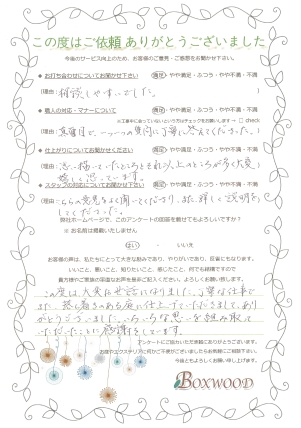 この度はご依頼ありがとうございました
今後のサービス向上のため、お客様のご意見・ご感想をお聞かせ下さい。
● お打ち合わせについてお聞かせ下さい 満足・やや満足・ふつう・やや不満・不満
(理由: 相談しやすいでした。 )
● 職人の対応・マナーについて 満足・やや満足・ふつう・やや不満・不満
check
(理由: 真面目で、一つ一つの質問に丁寧に答えてくださいました。 )
● 仕上がりについてお聞かせください 満足・やや満足・ふつう・やや不満・不満
(理由: 思い描いていたところとそれ以上のところが多く大変
嬉しく思っています。 )
● スタッフの対応についてお聞かせ下さい 満足・やや満足・ふつう・やや不満・不満
(理由: こちらの意見をよく聞いてくださり、また、詳しく説明を
してくださった。 )
弊社ホームページで、このアンケートの回答を載せてもよろしいですか?
※ お名前は掲載いたしません
はい ・ いいえ
お客様の声は、私たちにとって大きな励みであり、やりがいであり、反省にもなります。
いいこと、悪いこと、知りたいこと、感じたこと、何でも結構ですので
貴方様やご家族の率直なお声を是非ご記入ください。よろしくお願い致します。
この度は大変お世話になりました。丁寧な仕事で
また、落ち着きのある庭に仕上げていただきまして、あり
がとうございました。いろいろな思いを汲み取って
いただいたことに感謝をしています。
アンケートにご協力いただき誠にありがとうございます。
お庭やエクステリアに何かご不便がございましたらお気軽にご相談下さい。
今後ともよろしくお願い申し上げます。
BOXWOOD